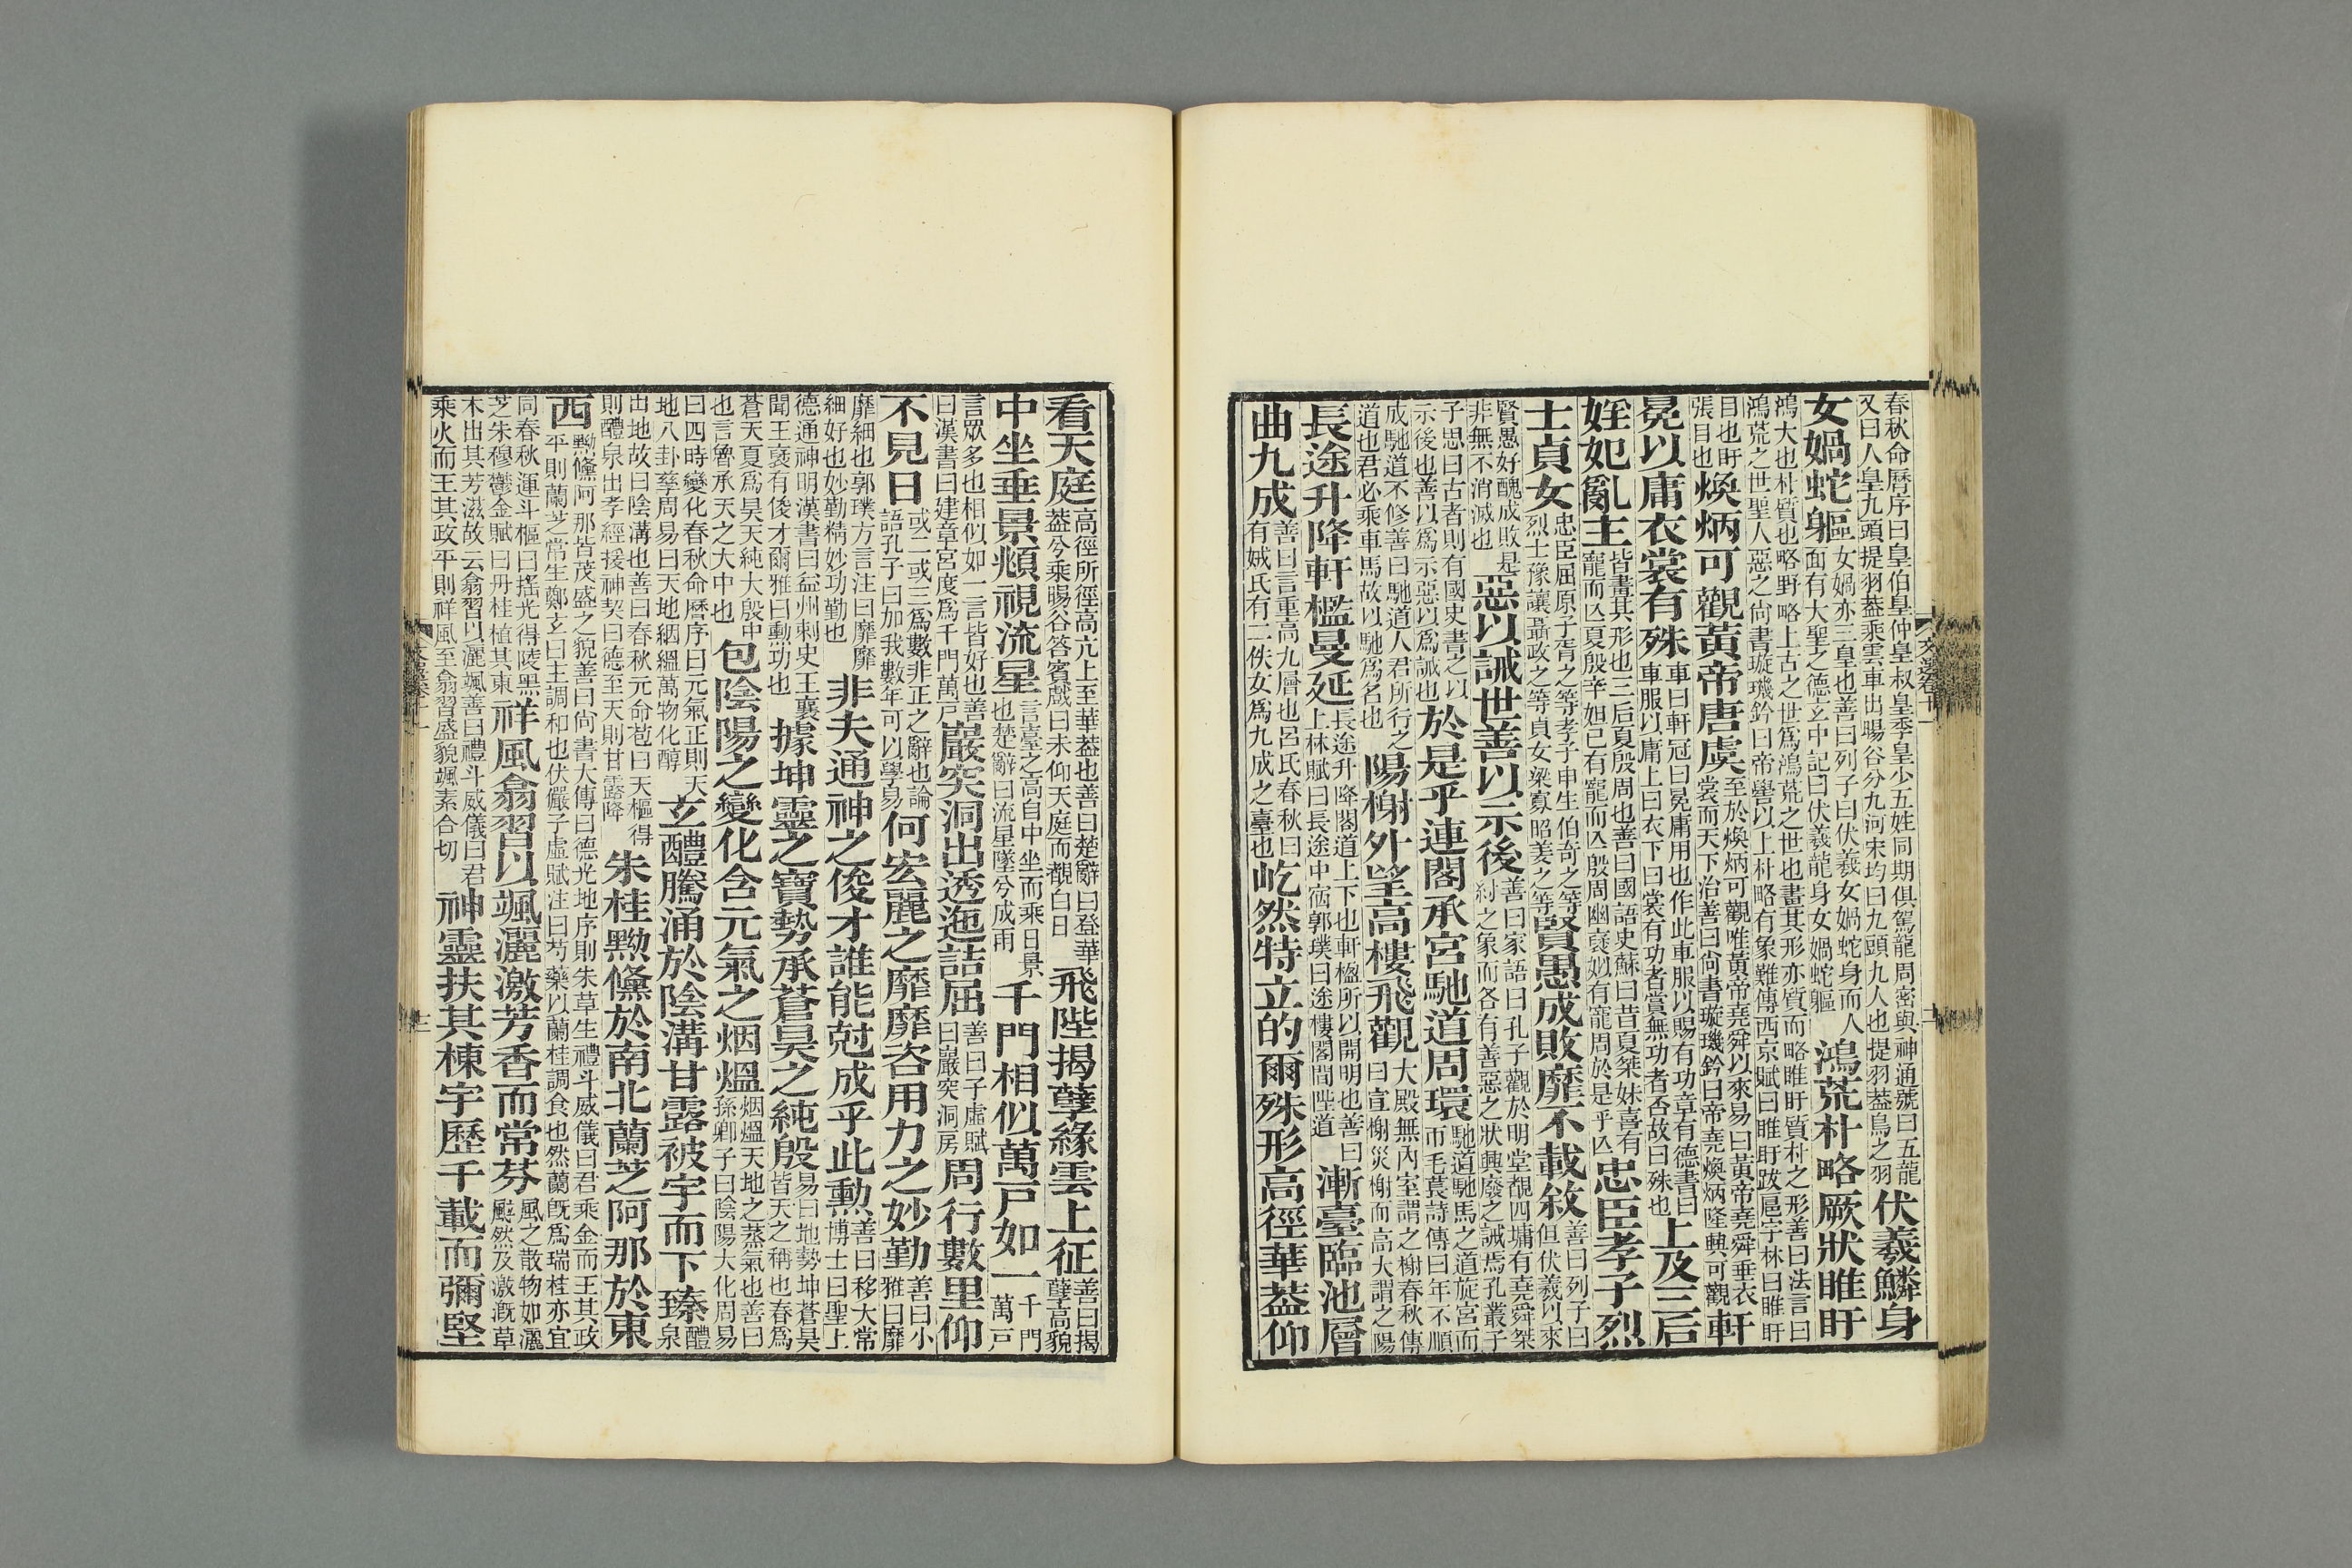 春秋命厤序曰皇伯皇仲皇叔皇季皇少五姓同期俱駕龍周密與神通號曰五龍又曰人皇九頭提羽蓋乘雲車出暘谷分九河宋均曰九頭九人也提羽蓋鳥之羽伏羲鱗身
女媧蛇軀女媧亦三皇也善曰列子曰伏羲女媧蛇身而人面有大聖之德玄中記曰伏羲龍身女媧蛇軀鴻荒朴略厥狀睢盱
鴻大也朴質也略野略上古之世爲鴻荒之世也畫其形亦質而略睢盱質朴之形善曰法言曰鴻荒之世聖人惡之尚書璇璣鈐曰帝嚳以上朴略有象難傳西京賦曰睢盱跋扈字林曰睢盱
目也盱張目也煥炳可觀黃帝唐虞至於煥炳可觀唯黃帝堯舜以來易曰黃帝堯舜垂衣裳而天下治善曰尚書璇璣鈐曰帝堯煥炳隆興可觀軒
冕以庸衣裳有殊車曰軒冠曰冕庸用也作此車服以賜有功章有德書曰車服以庸上曰衣下曰裳有功者賞無功者否故曰殊也上及三后
婬妃亂主皆畫其形也三后夏殷周也善曰國語史蘇曰昔夏桀妹喜有寵而亾夏殷辛妲己有寵而亾殷周幽襃姒有寵周於是乎亾忠臣孝子烈
士貞女忠臣屈原子胥之等孝子申生伯奇之等烈士豫讓聶政之等貞女梁寡昭姜之等賢愚成敗靡不載敘善曰列子曰但伏羲以來
賢愚好醜成敗是非無不消滅也惡以誡世善以示後善曰家語曰孔子觀於明堂覩四墉有堯舜桀紂之象而各有善惡之狀興廢之誡焉孔叢子
子思曰古者則有國史書之以示後也善以爲示惡以爲誡也於是乎連閣承宮馳道周環馳道馳馬之道旋宮而帀毛萇詩傳曰年不順
成馳道不修善曰馳道人君所行之道也君必乘車馬故以馳爲名也陽榭外望高樓飛觀大殿無內室謂之榭春秋傳曰宣榭災榭而高大謂之陽
長途升降軒檻曼延長途升降閣道上下也軒楹所以開明也善曰上林賦曰長途中宿郭璞曰途樓閣間陛道漸臺臨池層
曲九成善曰言重高九層也呂氏春秋曰有娀氏有二佚女爲九成之臺也屹然特立的爾殊形高徑華蓋仰
看天庭高徑所徑高亢上至華蓋也善曰楚辭曰登華蓋兮乘暘谷答賓戲曰未仰天庭而覩白日飛陛揭孽緣雲上征善曰揭孽高貌
中坐垂景頫視流星言臺之高自中坐而乘日景也楚辭曰流星墜兮成雨千門相似萬戸如一千門萬戸
言眾多也相似如一言皆好也善曰漢書曰建章宮度爲千門萬戸巖突洞出逶迤詰屈善曰子虛賦曰巖突洞房周行數里仰
不見日或二或三爲數非正之辭也論語孔子曰加我數年可以學易何宏麗之靡靡咨用力之妙勤善曰小雅曰靡
靡細也郭璞方言注曰靡靡細好也妙勤精妙功勤也非夫通神之俊才誰能尅成乎此勳善曰移大常博士曰聖上
德通神明漢書曰益州刺史王襄聞王襃有俊才爾雅曰勳功也據坤靈之寶勢承蒼昊之純殷易曰地勢坤蒼昊皆天之稱也春爲
蒼天夏爲昊天純大殷中也言魯承天之大中也包陰陽之變化含元氣之烟熅烟熅天地之蒸氣也善曰孫卿子曰陰陽大化周易
曰四時變化春秋命厤序曰元氣正則天地八卦孳周易曰天地絪縕萬物化醇玄醴騰涌於陰溝甘露被宇而下臻醴泉
出地故曰陰溝也善曰春秋元命苞曰天樞得則醴泉出孝經援神契曰德至天則甘露降朱桂黝儵於南北蘭芝阿那於東
西黝儵阿那皆茂盛之貌善曰尚書大傳曰德光地序則朱草生禮斗威儀曰君乘金而王其政平則蘭芝常生鄭玄曰主調和也伏儼子虛賦注曰芍藥以蘭桂調食也然蘭旣爲瑞桂亦宜
同春秋運斗樞曰搖光得陵黑芝朱穆鬱金賦曰丹桂植其東祥風翕習以颯灑激芳香而常芬風之散物如灑颸然及激漑草
木出其芳滋故云翕習以灑颯善曰禮斗威儀曰君乘火而王其政平則祥風至翕習盛貌颯素合切神靈扶其棟宇歷千載而彌堅